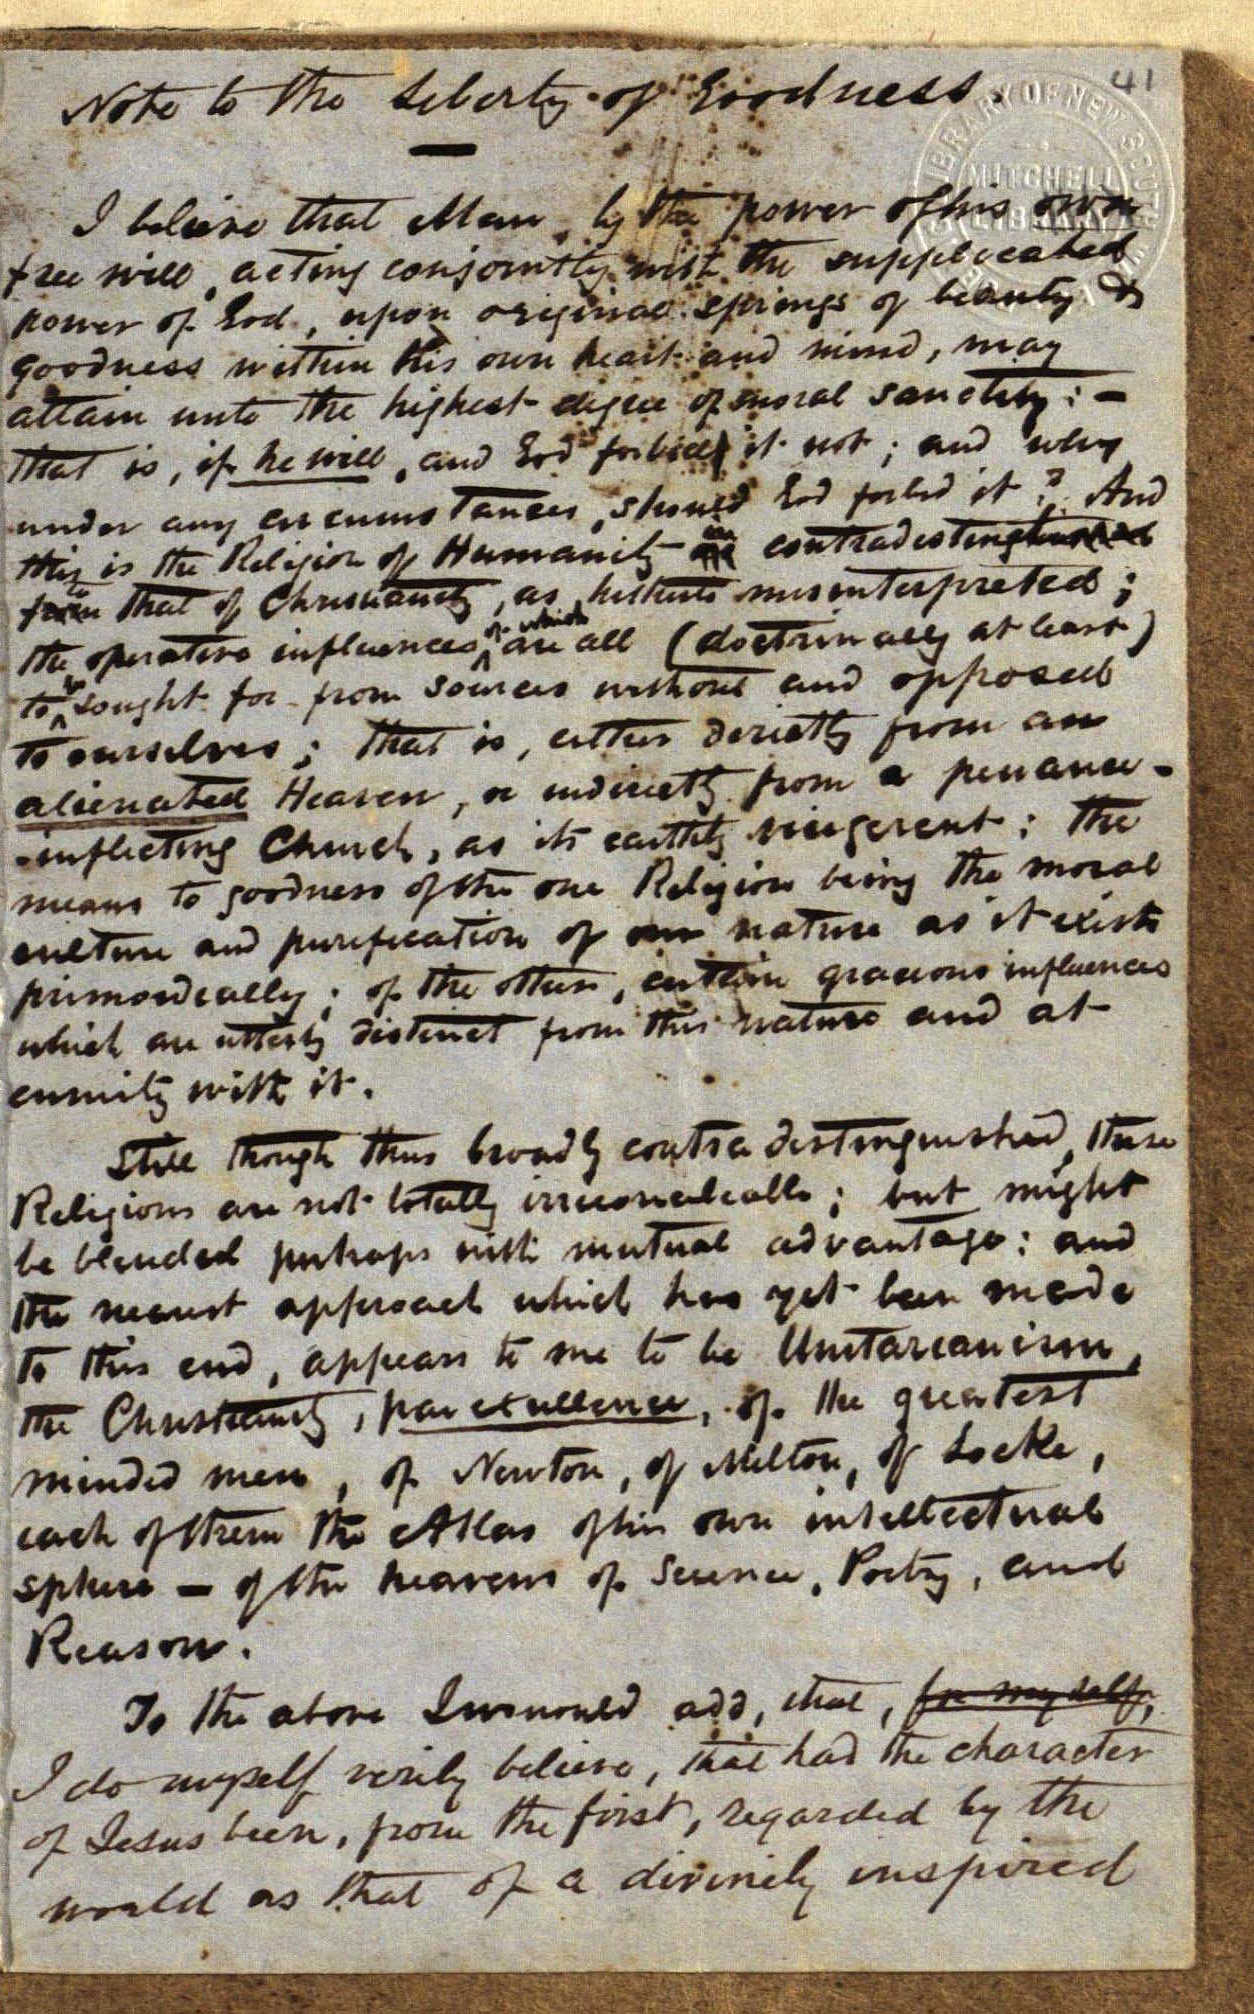 41
Note to the Liberty of Goodness.
I believe that Man, by the power of his own
free will, acting conjointly with the supplicated
power of God, upon original springs of beauty &
goodness within his own heart and mind, may
attain unto the highest degree of moral sanctity: –
that is, if he will, and God forbid it not; and why
under any circumstances, should God forbid it? And
this is the Religion of Humanity in contradistinction
to that of Christianity, as hitherto misinterpreted;
the operative influences of which are all (doctrinally at least)
to be sought for from sources without and opposed
to ourselves; that is, either directly from an
alienated Heaven, or indirectly from a penance-
-inflicting Church, as its earthly vicegerent: the
means to goodness of the one Religion being the moral
culture and purification of our nature as it exists
primordially; of the other, certain gracious influences
which are utterly distinct from this nature and at
enmity with it.
Still though thus broadly contradistinguished, these
Religions are not totally irreconcileable; but might
be blended perhaps with mutual advantage: and
the nearest approach which has yet been made
to this end, appears to me to be Unitarianism,
the Christianity, par excellence, of the greatest
minded men, of Newton, of Milton, of Locke,
each of them the Atlas of his own intellectual
sphere – of the heavens of Science, Poetry, and
Reason.
To the above I would add, that, for myself,
I do myself verily believe, that had the character
of Jesus been, from the first, regarded by the
world as that of a divinely inspired
LIBRARY OF NEW SOUTH
MITCHELL
LIBRARY